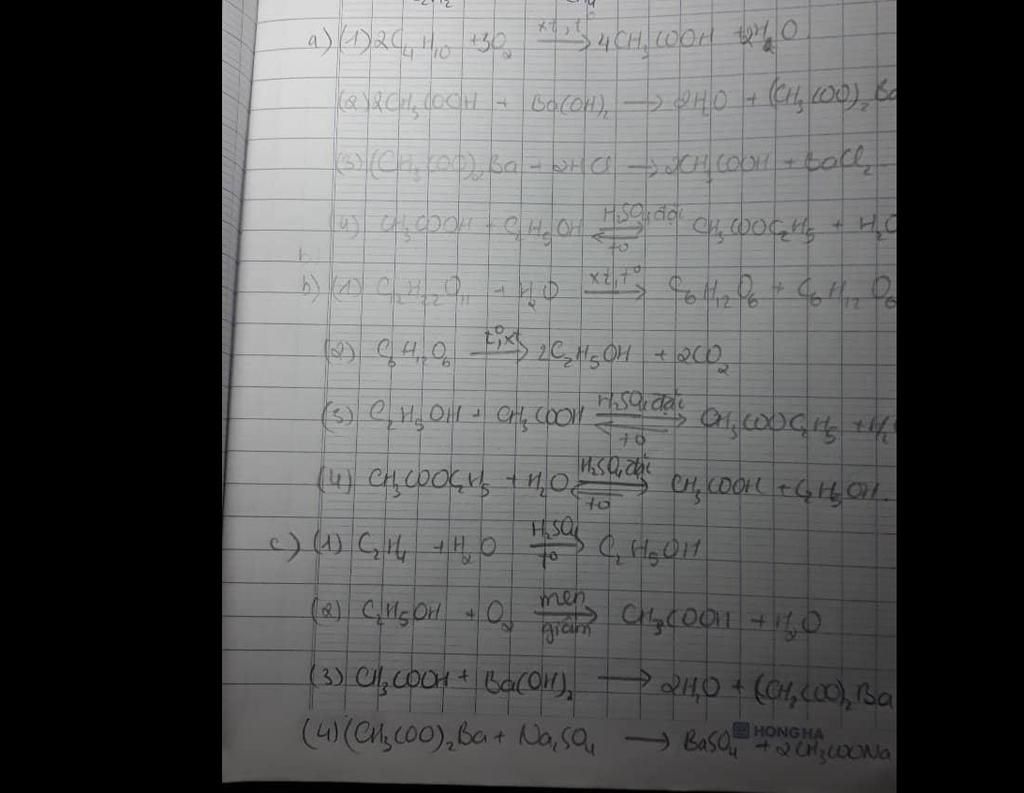 a) (1) 2C₄H₁₀ + 3O₂ xt, t° → 4CH₃COOH + 2H₂O
(2) 2CH₃COOH + Ba(OH)₂ → 2H₂O + (CH₃COO)₂Ba
(3) (CH₃COO)₂Ba + 2HCl → 2CH₃COOH + BaCl₂
(4) CH₃COOH + C₂H₅OH H₂SO₄ đặc ⇌ t° CH₃COOC₂H₅ + H₂O
b) (1) C₁₂H₂₂O₁₁ + H₂O xt, t° → C₆H₁₂O₆ + C₆H₁₂O₆
(2) C₆H₁₂O₆ t°, xt → 2C₂H₅OH + 2CO₂
(3) C₂H₅OH + CH₃COOH H₂SO₄ đặc ⇌ t° CH₃COOC₂H₅ + H₂
(4) CH₃COOC₂H₅ + H₂O H₂SO₄ đặc ⇌ t° CH₃COOH + C₂H₅OH.
c) (1) C₂H₄ + H₂O H₂SO₄ → t° C₂H₅OH
(2) C₂H₅OH + O₂ men → giấm CH₃COOH + H₂O
(3) CH₃COOH + Ba(OH)₂ → 2H₂O + (CH₃COO)₂Ba
(4) (CH₃COO)₂Ba + Na₂SO₄ → BaSO₄ + 2CH₃COONa
HONGHA